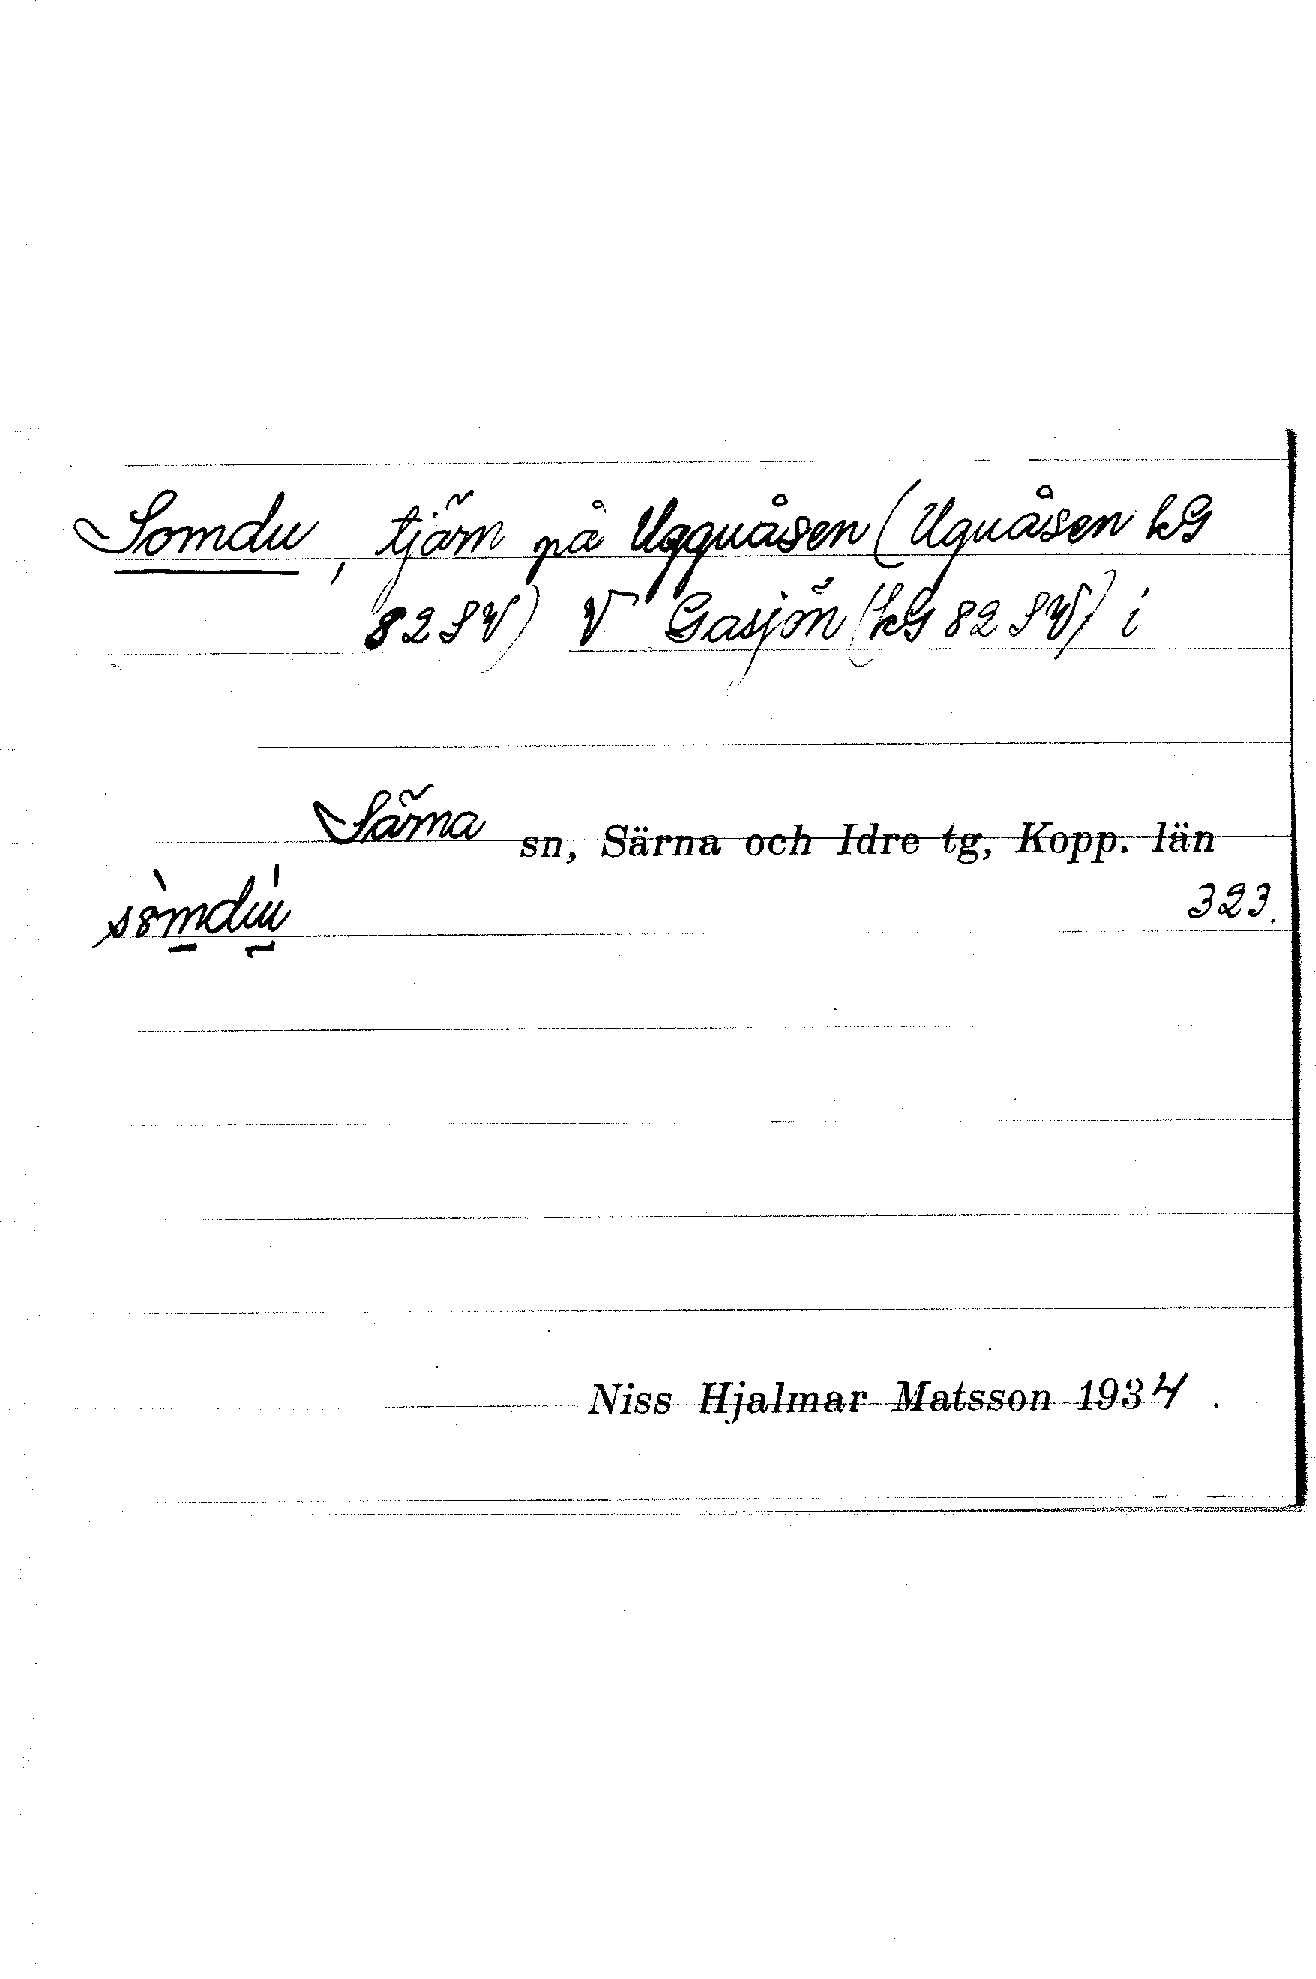 Somdu, tjärn på Ugguåsen (Uguåsen kG
82 SV) V Gasjön (kG 82 SV) i
Särna sn, Särna och Idre tg, Kopp. län
323.
Niss Hjalmar Matsson 1934.